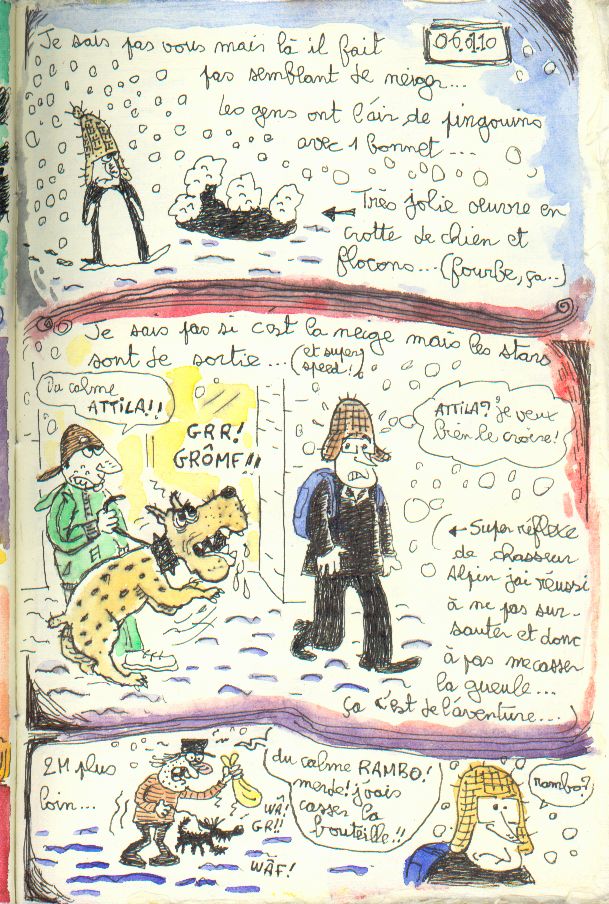 Je sais pas vous mais là il fait
06.01.10
pas semblant de neiger...
les gens ont l'air de pingouins
avec 1 bonnet...
← Très jolie œuvre en
crotte de chien et
flocons... (fourbe, ça..)
Je sais pas si c'est la neige mais les stars
sont de sortie... (et super speed!)
Du calme
ATTILA!!
GRR!
GRÔMF!!
ATTILA? je veux
bien le croire!
← Super réflexe
de chasseur
Alpin j'ai réussi
à ne pas sur-
sauter et donc
à pas me casser
la gueule...
ça c'est de l'aventure...
2M plus
loin...
du calme RAMBO!
merde! j'vais
casser la
bouteille!!
WÂ!
GR!!
WÂF!
rambo?